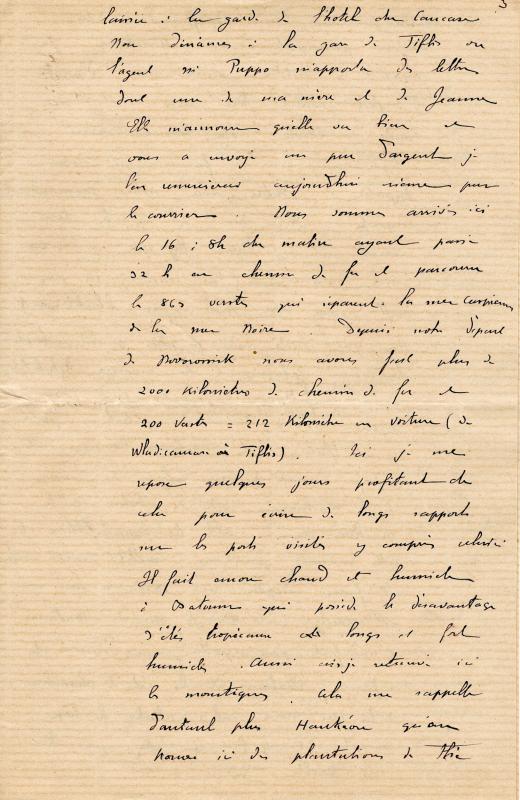 3
laissée à la garde de l'hotel du Caucase
Nous dinâmes à la gare de Tiflis ou
l'agent mr Puppo m'apporta des lettres
dont une de ma mère et de Jeanne
Elle m'annonce qu'elle va bien et
vous a envoyé un peu d'argent je
l'en remercierai aujourd'hui même par
le courrier. Nous sommes arrivés ici
le 16 à 8h du matin ayant passé
32 h en chemin de fer et parcouru
le 863 verstes qui séparent la mer Caspienne
de la mer Noire. Depuis notre départ
de Novorossisk nous avons fait plus de
2000 Kilomètres de chemin de fer et
200 Verstes = 212 Kilomètres en voiture (de
Wladicaucase à Tiflis). Ici je me
repose quelques jours profitant de
cela pour écrire de longs rapports
sur les ports visités y compris celui ci
Il fait encore chaud et humide
à Batoum qui possède le désavantage
d'étés tropicaux longs et fort
humides. Aussi ai-je retrouvé ici
les moustiques. Cela me rappelle
d'autant plus Hankéou qu'on
trouve ici des plantations de thé